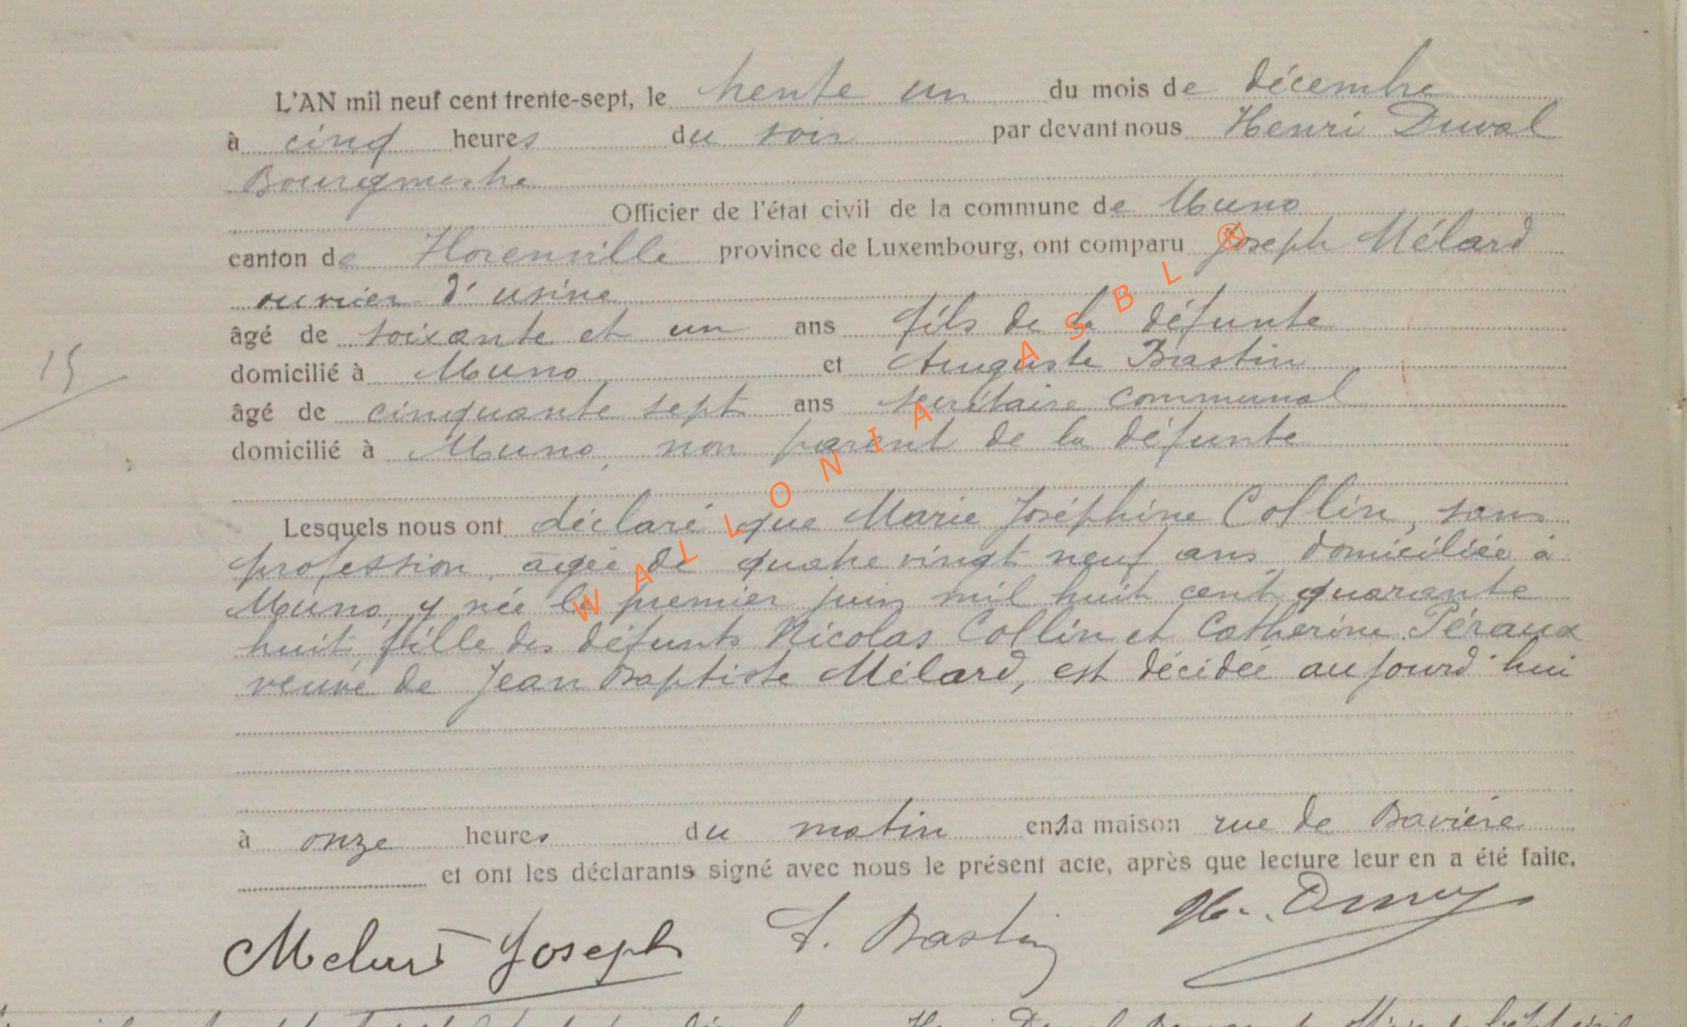 L'AN mil neuf cent trente-sept, le trente un du mois de décembre
à cinq heures du soir par devant nous Henri Duval
Bourgmestre
Officier de l'état civil de la commune de Muno
canton de Florenville province de Luxembourg, ont comparu Joseph Mélard
ouvrier d'usine
âgé de soixante et un ans fils de la défunte
domicilié à Muno et Auguste Bastin
âgé de cinquante sept ans secrétaire communal
domicilié à Muno, non parent de la défunte
Lesquels nous ont déclaré que Marie Joséphine Collin, sans
profession, agée de quatre vingt neuf ans, domiciliée à
Muno, y née le premier juin mil huit cent quarante
huit, fille des défunts Nicolas Collin et Catherine Féraux
veuve de Jean Baptiste Mélard, est décédée aujourd'hui
à onze heures du matin en sa maison rue de Bavière
et ont les déclarants signé avec nous le présent acte, après que lecture leur en a été faite.
Melard Joseph A. Bastin H. Duval
15
WALLONIA ASBL ®